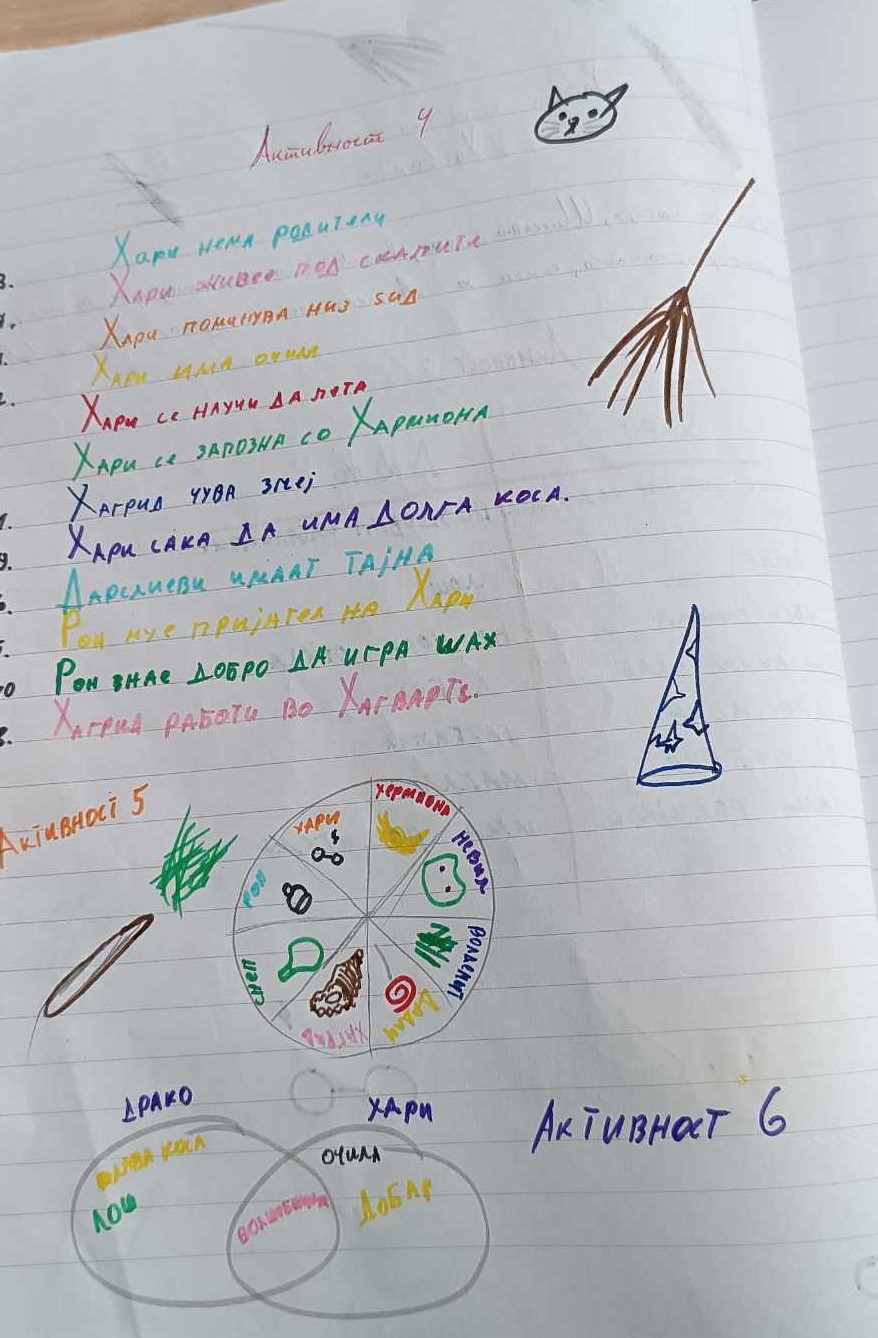 Активност 4
3. Хари нема родители
Хари живее под скалите
Хари поминува низ ѕид
Хари има очила
Хари се научи да лета
Хари се запозна со Хармиона
Хагрид чува змеј
9. Хари сака да има долга коса.
Дарслиеви имаат тајна
Рон му е пријател на Хари
Рон знае добро да игра шах
Хагрид работи во Хагвартс.
Активност 5
Хари
Хермиона
Невил
Рон
Волдемут
Снеп
Хагрид
Дадли
Драко
Хари
Активност 6
плава коса
лош
волшебници
очила
добар